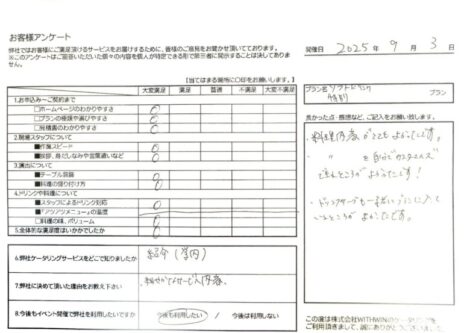 お客様アンケート
弊社ではお客様にご満足頂けるサービスをお届けするために、皆様のご意見をお聞かせ頂いております。
※このアンケートはご回答いただいた個々の内容を個人が特定できる形で第三者に開示することは決してありません。
開催日 2025年 9月 3日
【当てはまる箇所に○印をお願いします。】
大変満足 満足 普通 不満足 大変不満足
1.お申込み~ご契約まで
□ホームページのわかりやすさ ○
□プランの種類や選びやすさ ○
□見積書のわかりやすさ ○
2.現場スタッフについて
■作業スピード ○
■挨拶、身だしなみや言葉遣いなど ○
3.演出について
■テーブル装飾 ○
■料理の盛り付け方 ○
4.ドリンクや料理について
■スタッフによるドリンク対応 ○
■「アツアツメニュー」の温度
□料理の味、ボリューム ○
5.全体的な満足度はいかがでしたか ○
6.弊社ケータリングサービスをどこで知りましたか 紹介(学内)
7.弊社に決めて頂いた理由をお教え下さい サービス内容
8.今後もイベント開催で弊社を利用したいですか 今後も利用したい / 今後は利用しない
プラン名 プラン
特別
良かった点・感想など、ご記入をお願い致します。
・料理内容がとてもよかったです。
・〃 を自分でカスタマイズ
できるところがよかったです!
・ドリンクサーブも一緒に
いるところがよかったです。
この度は株式会社WITHWINのケータリングを
ご利用頂きまして、誠にありがとうございました。